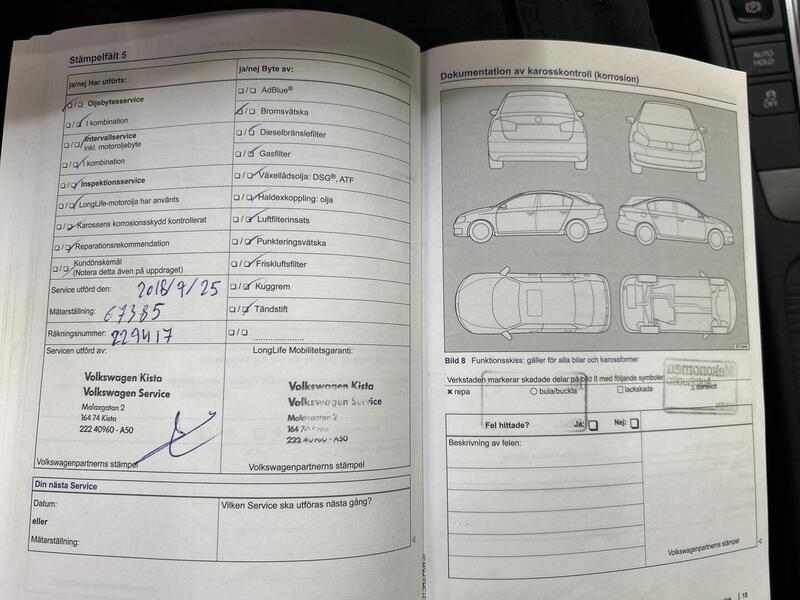 Stämpelfält 5
ja/nej Har utförts:
Oljebytesservice
I kombination
Intervallservice
inkl. motoroljebyte
I kombination
Inspektionsservice
LongLife-motorolja har använts
Karossens korrosionsskydd kontrollerat
Reparationsrekommendation
Kundönskemål
(Notera detta även på uppdraget)
Service utförd den: 2018/9/25
Mätarställning: 67385
Räkningsnummer: 229417
ja/nej Byte av:
AdBlue®
Bromsvätska
Dieselbränslefilter
Gasfilter
Växellådsolja: DSG®, ATF
Haldexkoppling: olja
Luftfilterinsats
Punkteringsvätska
Friskluftsfilter
Kuggrem
Tändstift
Servicen utförd av:
Volkswagen Kista
Volkswagen Service
Malaxgatan 2
164 74 Kista
222 40960 - A50
Volkswagenpartnerns stämpel
LongLife Mobilitetsgaranti:
Volkswagen Kista
Volkswagen Service
Malaxgatan 2
164 74 Kista
222 40960 - A50
Volkswagenpartnerns stämpel
Din nästa Service
Datum:
eller
Mätarställning:
Vilken Service ska utföras nästa gång?
Dokumentation av karosskontroll (korrosion)
Bild 8 Funktionsskiss: gäller för alla bilar och karossformer
Verkstaden markerar skadade delar på bild 8 med följande symboler:
× repa
○ bula/buckla
□ lackskada
△ stenskott
Mekonomen
Fel hittade? Ja: Nej:
Beskrivning av felen:
Volkswagenpartnerns stämpel
15
AUTO
HOLD